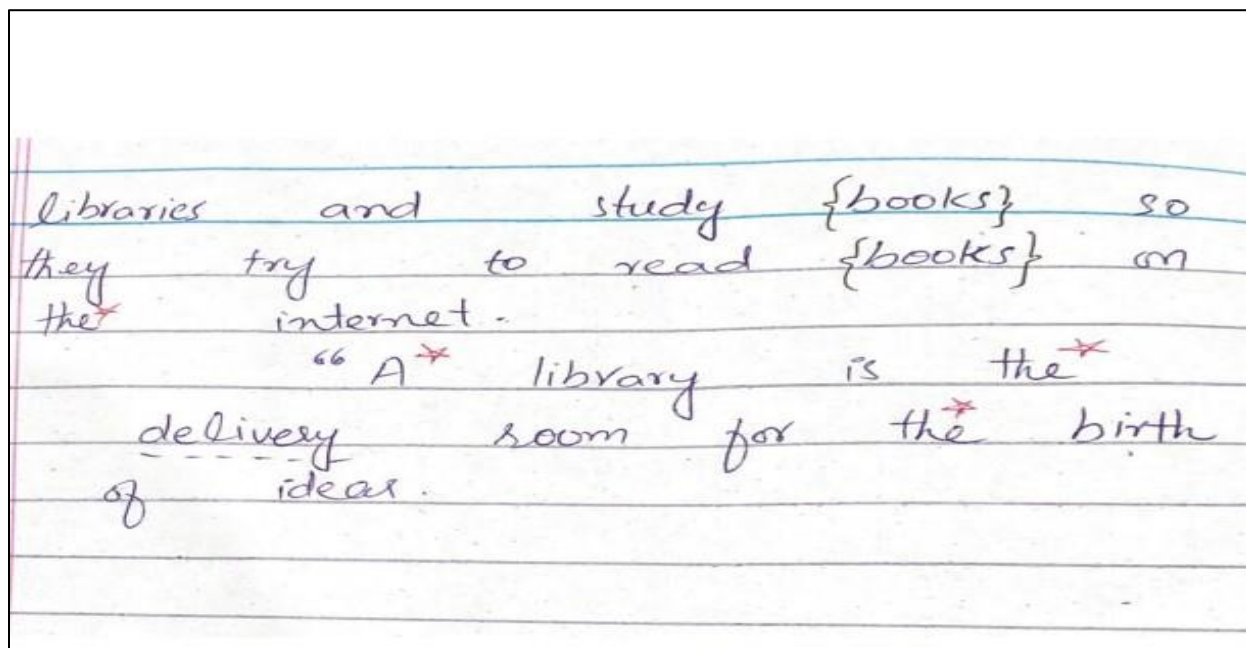 libraries and study {books} so
they try to read {books} on
the* internet.
"A* library is the*
delivery room for the* birth
of ideas.